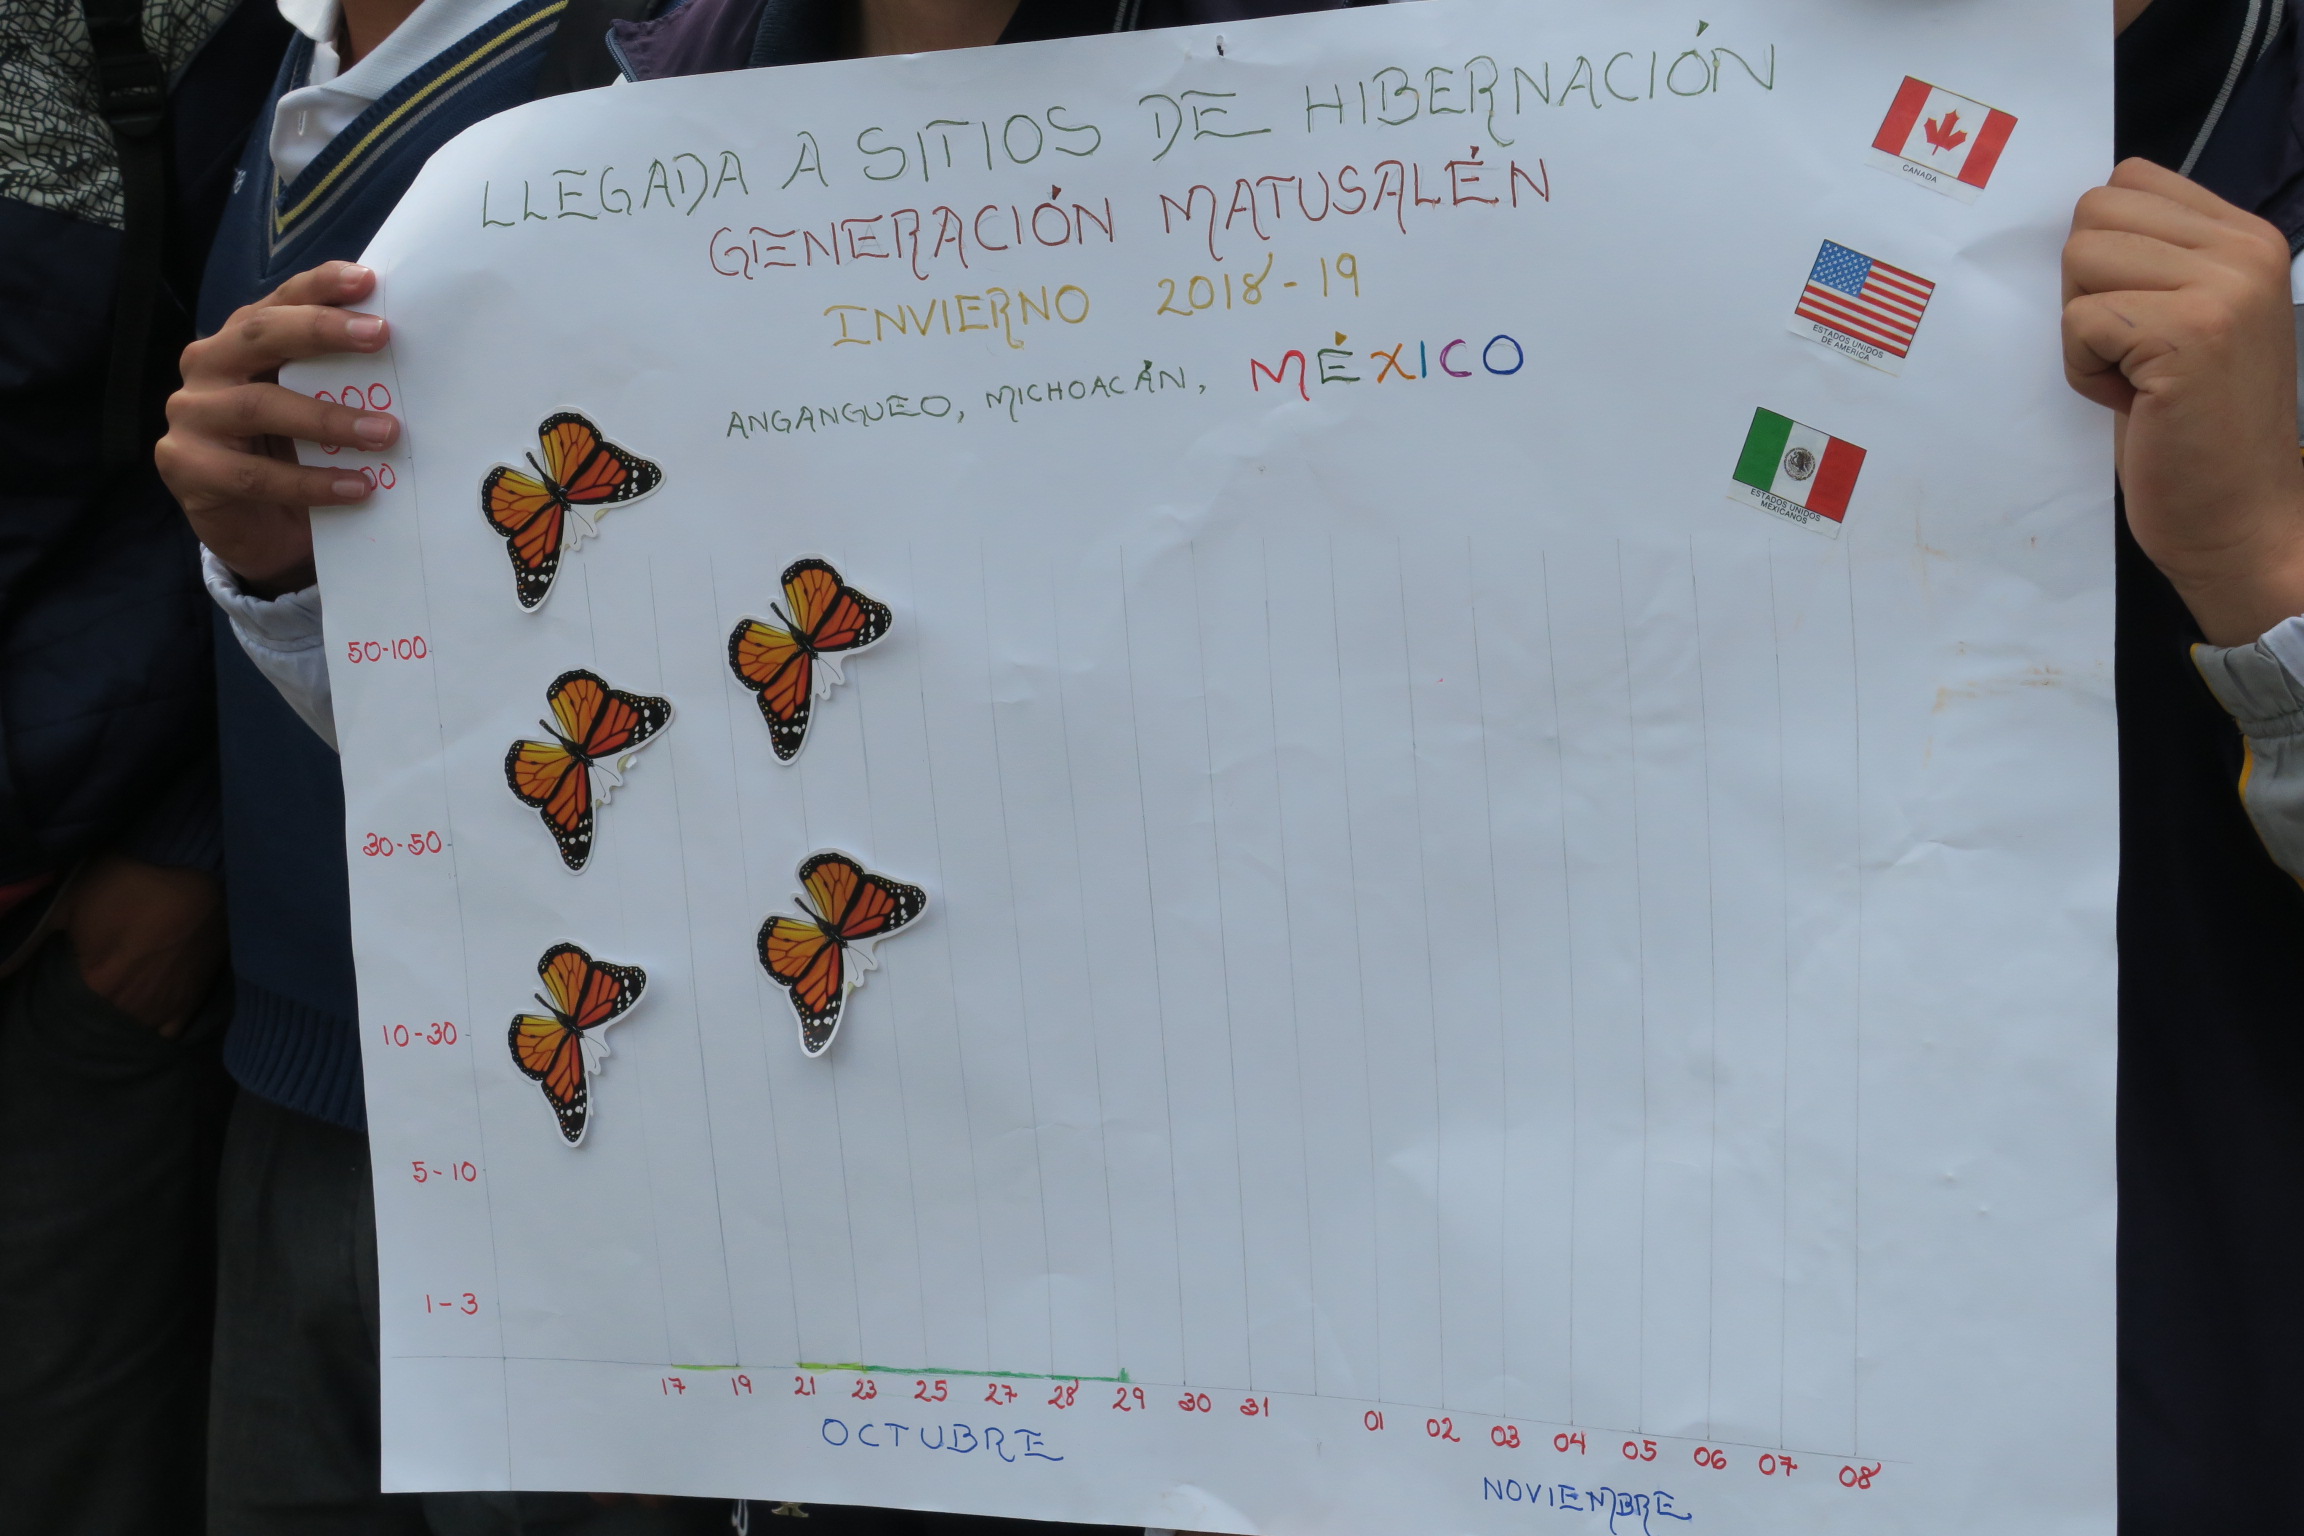 LLEGADA A SITIOS DE HIBERNACIÓN
GENERACIÓN MATUSALÉN
INVIERNO 2018-19
ANGANGUEO, MICHOACÁN, MÉXICO
CANADA
ESTADOS UNIDOS
DE AMERICA
ESTADOS UNIDOS
MEXICANOS
50-100
30-50
10-30
5-10
1-3
17 19 21 23 25 27 28 29 30 31 01 02 03 04 05 06 07 08
OCTUBRE
NOVIEMBRE